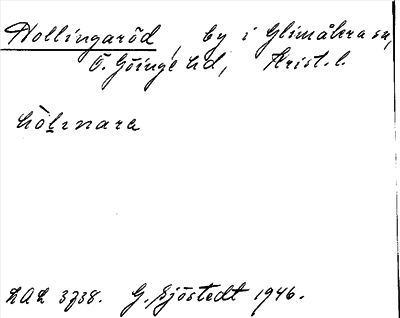 Hollingaröd, by i Glimåkra sn,
Ö. Göinge hd, Krist. l.
hòlınara
LAL 3738. G. Sjöstedt 1946.